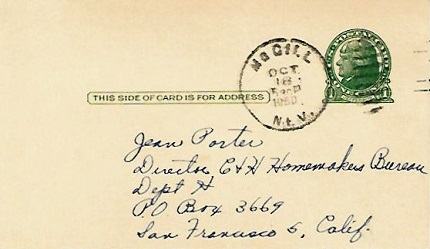 McGILL
OCT.
18
1950
NEV.
THIS SIDE OF CARD IS FOR ADDRESS
Jean Porter
Director C&H Homemakers Bureau
Dept H
P.O Box 3669
San Francisco 5, Calif.